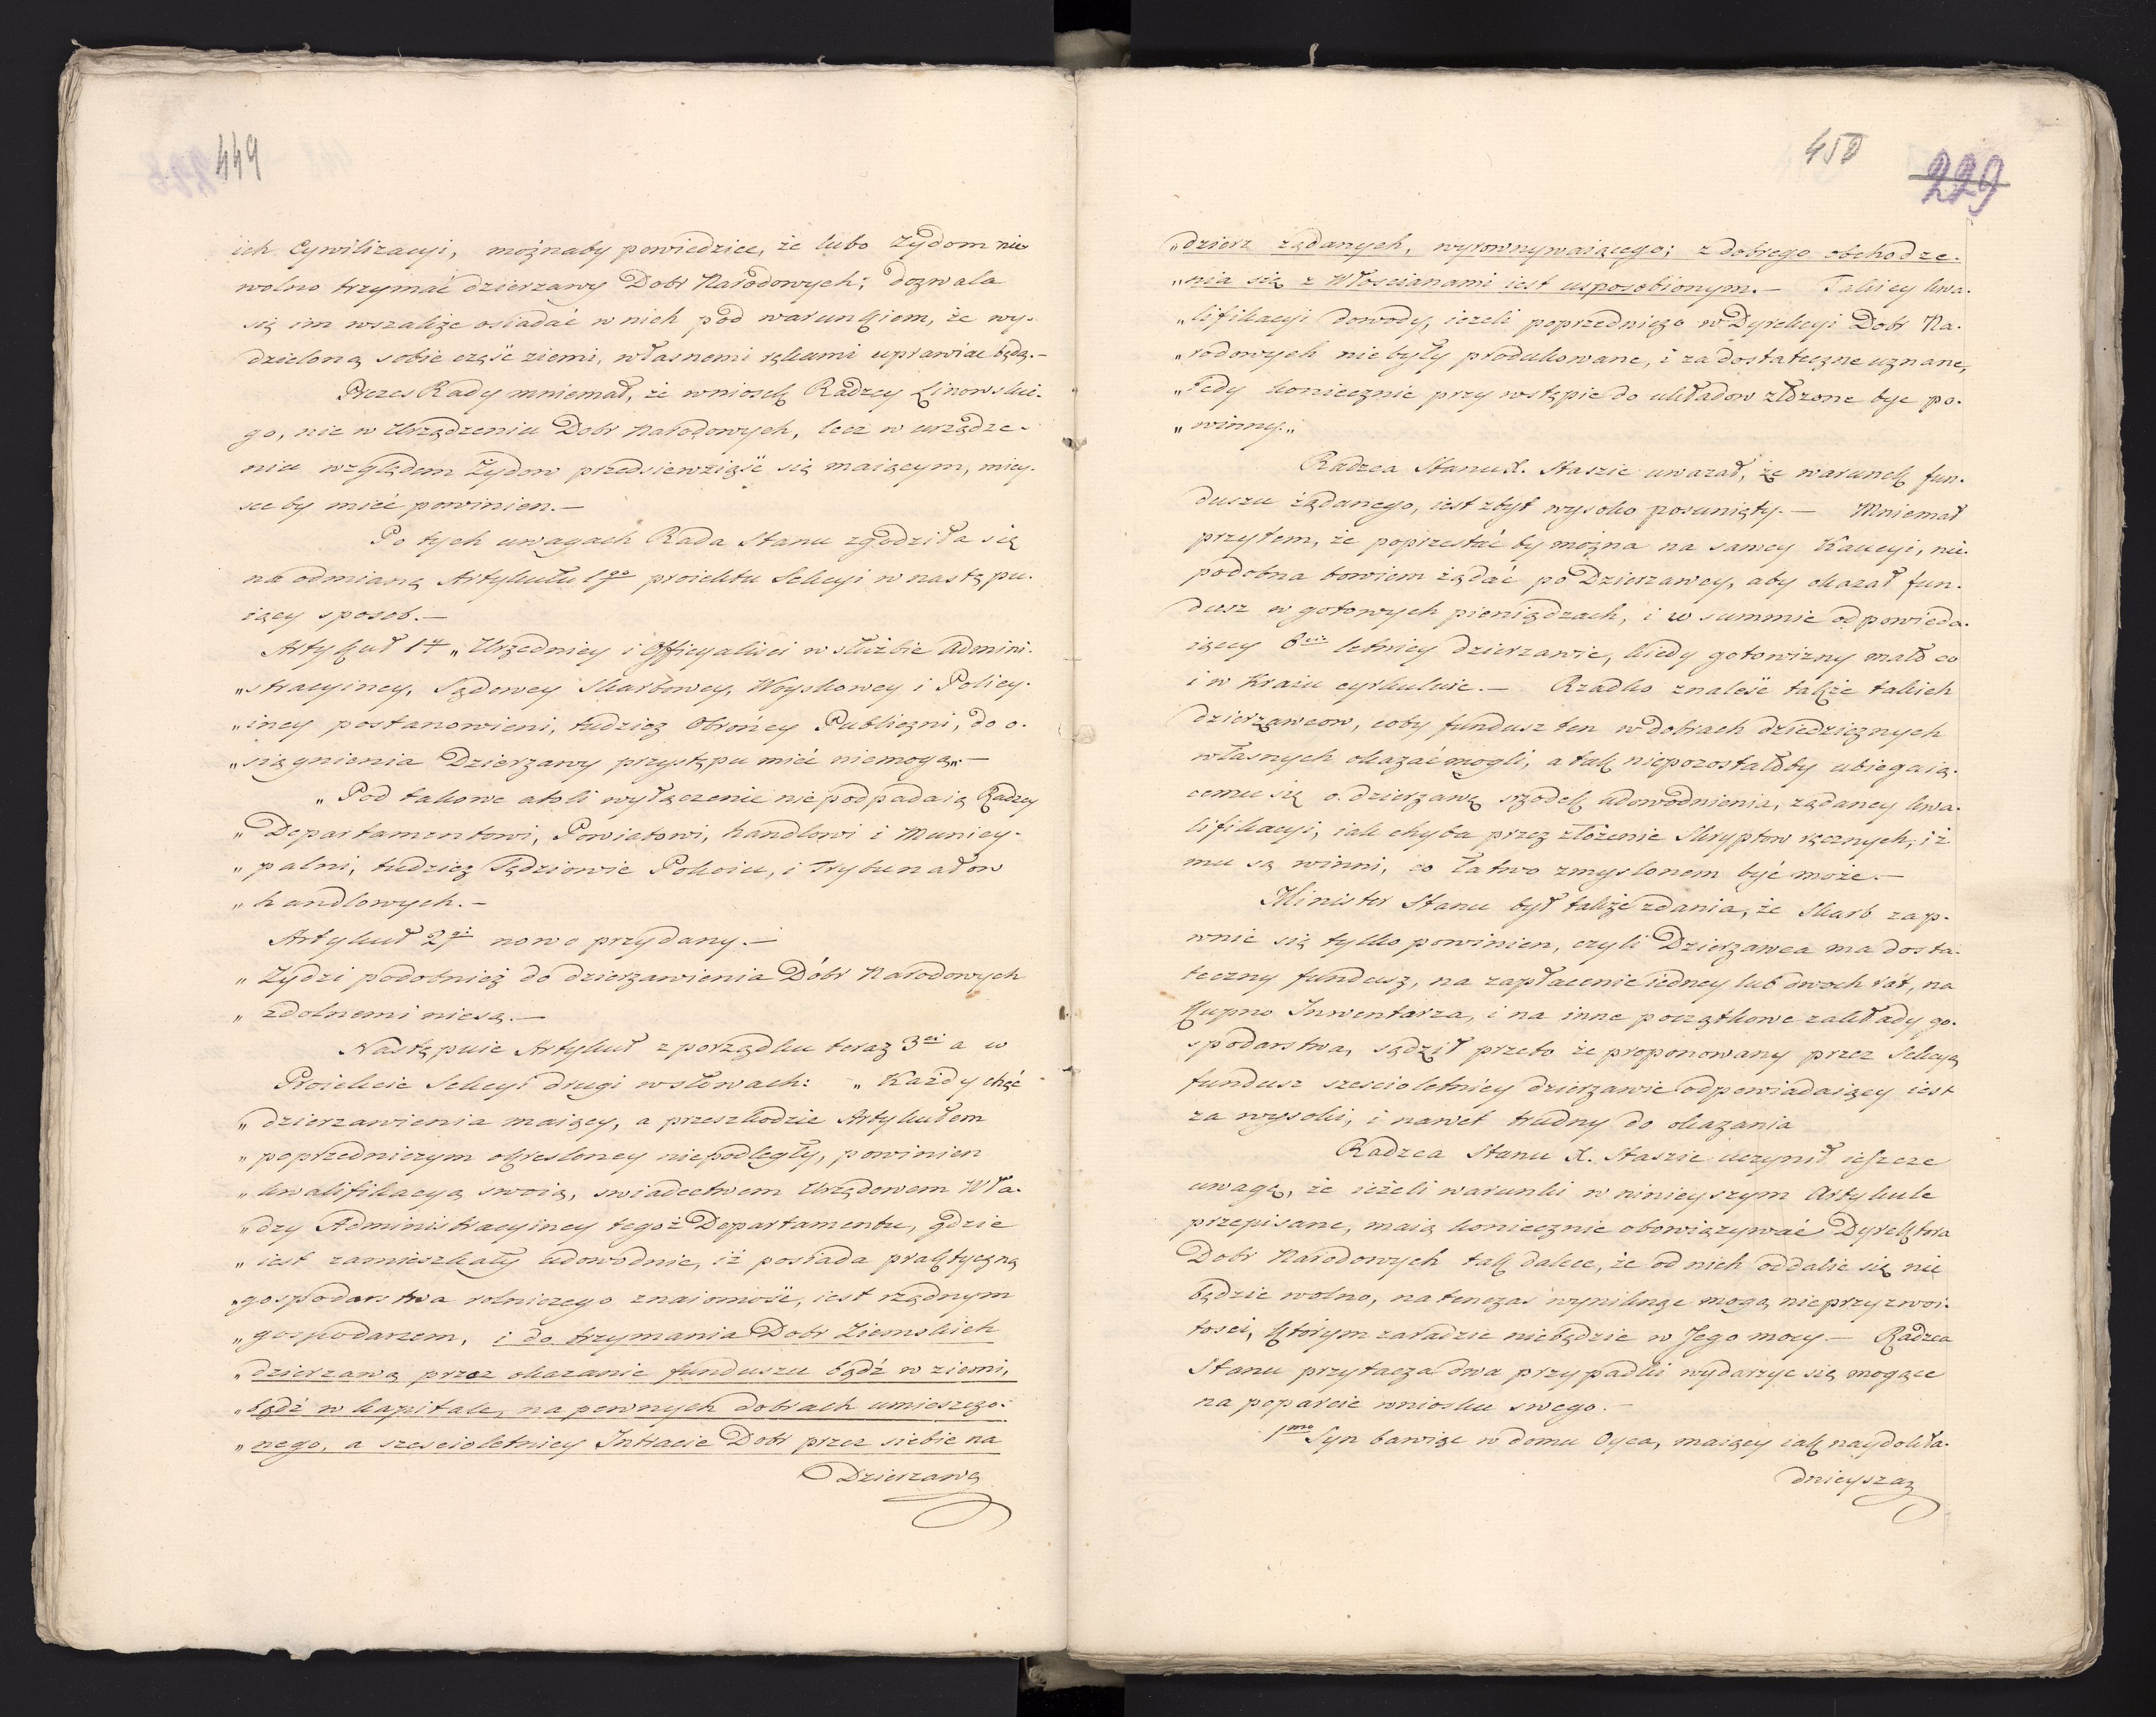 449
ich Cywilizacyi, możnaby powiedziec, że lubo Żydom nie
wolno trzymać dzierzawy Dobr Narodowych; dozwala
się im wszakże osiadać w nich pod warunkiem, że wy-
dzieloną sobie część ziemi, własnemi rękami uprawiac będą.-
Prezes Rady mniemał, że wniosek Radzcy Linowskie-
go, nie w Urządzeniu Dobr Narodowych, lecz w urządze-
niu względem Żydow przedsiewziąść się maiącym, miey-
sce by mieć powinien.-
Po tych uwagach Rada Stanu zgodziła się
na odmianę Artykułu 1go proiektu Sekcyi w nastę pu-
iący sposob.-
Artykuł 1y „ Urzędnicy i Officyaliści w służbie Admini-
„stracyiney, Sądowey Skarbowey, Woyskowey i Policy-
„iney postanowieni, tudziez Obrońcy Publiczni, do o-
„siągnienia Dzierzawy przystępu mieć niemogą„-
„ Pod takowe atoli wyłączenie nie podpadaią Radzcy
„ Departamentowi, Powiatowi, handlowi i Municy-
„ palni, tudziez Sędziowie Pokoiu, i Trybunałow
„ handlowych.-
Artykuł 2gi nowo przydany.-
„ Żydzi podobnież do dzierzawienia Dóbr Narodowych
„ zdolnemi niesą.-
Następuie Artykuł z porządku teraz 3ci a w
Proiekcie Sekcyi drugi w słowach: „ Każdy chęć
„ dzierzawienia maiący, a przeszkodzie Artykułem
„ poprzedniczym okresloney niepodległy, powinien
„ kwalifikacyą swoią, swiadectwem Urzędowem Wła-
„ dzy Administracyiney tegoż Departamentu, gdzie
„ iest zamieszkały udowodnic, iż posiada praktyczną
„gospodarstwa rolniczego znaiomość, iest rządnym
„gospodarzem, i do trzymania Dobr Ziemskich
„dzierzawą przez okazanie funduszu bądź w ziemi,
„bądź w kapitale, na pewnych dobrach umieszczo-
„nego, a szescioletniey Intracie Dobr przez siebie na
Dzierzawę
450
229
„dzierz rządanych, wyrownywaiącego; z dobrego obchodze-
„nia się z Włoscianami iest usposobionym.- Takiey kwa-
„lifikacyi dowody, iezeli poprzedniczo w Dyrekcyi Dobr Na-
„rodowych niebyły produkowane, i za dostateczne uznane,
„Tedy koniecznie przy wstępie do układow złozone byc po-
„ winny.„
Radzca Stanu X. Staszic uwazał, że warunek fun-
duszu żądanego, iest zbyt wysoko posunięty.- Mniemał
przytem, że poprzestać by można na samey Kaucyi, nie-
podobna bowiem żądać po Dzierzawcy, aby okazał fun-
dusz w gotowych pieniądzach, i w summie odpowieda-
iącey 6cio letniey dzierzawie, kiedy gotowizny mało co
i w Kraiu cyrkuluie.- Rzadko znaleść także takich
dzierzawcow, coby fundusz ten w dobrach dziedzicznych
własnych okazać mogli, a tak niepozostałoby ubiegaią-
cemu się o dzierzawę srzodek udowodnienia, ządaney kwa-
lifikacyi, iak chyba przez złożenie Skryptow ręcznych, iż
mu są winni, co łatwo zmyslonem być może.-
Minister Stanu był także zdania, że Skarb zap-
wnic się tylko powinien, czyli Dzierzawca ma dosta-
teczny fundusz, na zapłacenie iedney lub dwoch rát, na
Kupno Inwentarza, i na inne początkowe zakłady go-
spodarstwa, sądził przeto że proponowany przez Sekcyą
fundusz szescioletniey dzierzawie odpowiadaiący iest
za wysoki, i nawet trudny do okazania
Radzca Stanu X. Staszic uczynił ieszcze
uwagę, że ieżeli warunki w ninieyszym Artykule
przepisane, maią koniecznie obowiązywać Dyrektora
Dobr Narodowych tak dalece, że od nich oddalic się nie
będzie wolno, natenczas wyniknąc mogą nieprzyzwoi-
tosci, którym zaradzic niebędzie w Jego mocy.- Radzca
Stanu przytacza dwa przypadki wydarzyc się mogące
na poparcie wniosku swego.-
1mo Syn bawiąc w domu Oyca, maiący iak naydokła-
dnieyszą